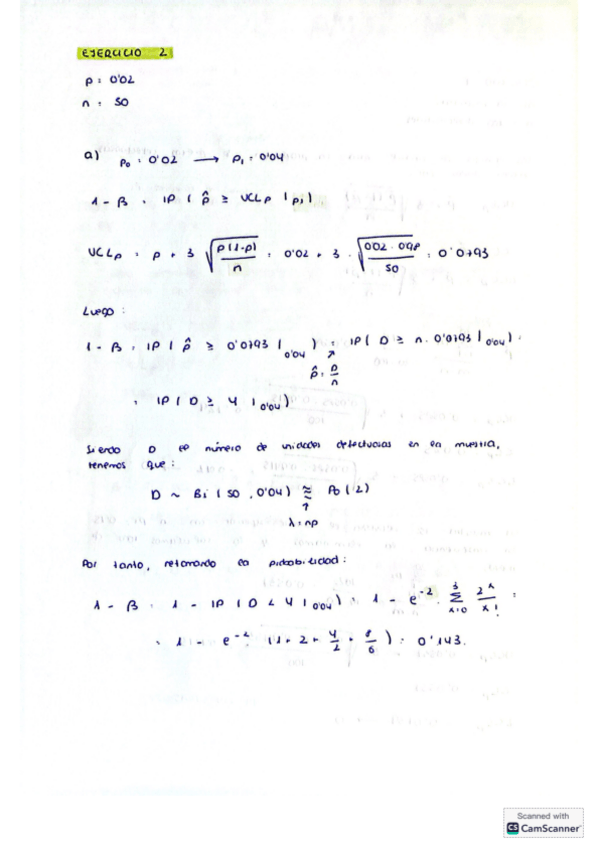 EJERCICIO 2
p = 0'02
n = 50
a) p₀ = 0'02 → p₁ = 0'04
1 - β = IP ( p̂ ≥ UCLp | p₁ )
UCLp = p + 3 √(p(1-p)/n) = 0'02 + 3 · √(0'02 · 0'98/50) = 0'0793
Luego :
1 - β = IP ( p̂ ≥ 0'0793 | 0'04 ) = IP ( D ≥ n · 0'0793 | 0'04 ) =
p̂ = D/n
= IP ( D ≥ 4 | 0'04 )
Siendo D el número de unidades defectuosas en la muestra,
tenemos que :
D ~ Bi ( 50 , 0'04 ) ≈ Po ( 2 )
λ = np
Por tanto, retomando la probabilidad :
1 - β = 1 - IP ( D < 4 | 0'04 ) = 1 - e⁻² · Σ (x=0, 3) 2ˣ/x! =
= 1 - e⁻² ( 1 + 2 + 4/2 + 8/6 ) = 0'143.
Scanned with
CS CamScanner